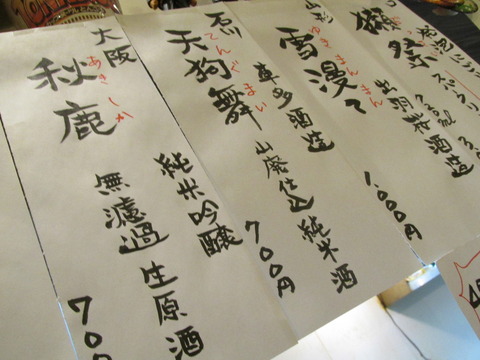 獺祭
発泡にごり
スパークリング
1,000円
山形
雪漫々
ゆきまんまん
出羽桜酒造
石川
天狗舞
てんぐまい
車多酒造
山廃仕込純米酒
700円
大阪
秋鹿
あきしか
純米吟醸
無濾過生原酒
700